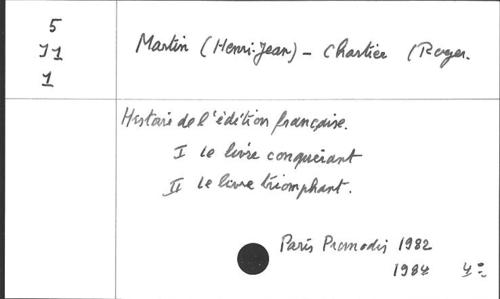 5
J1
1
Martin (Henri-Jean) - Chartier (Roger.
Histoire de l'édition française.
I Le livre conquérant
II Le livre triomphant.
Paris Promodis 1982
1984 4°